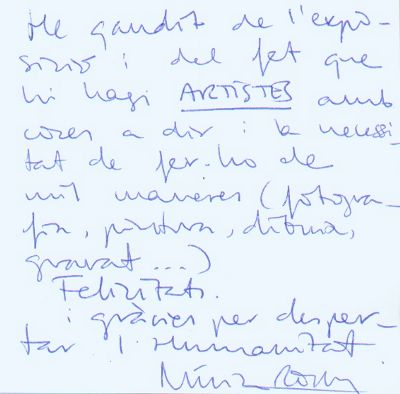 He gaudit de l'expo-
sició i del fet que
hi hagi ARTISTES amb
coses a dir i la necessi-
tat de fer-ho de
mil maneres (fotogra-
fia, pintura, dibuix,
gravat...)
Felicitats.
i gràcies per desper-
tar l'Humanitat
Núria